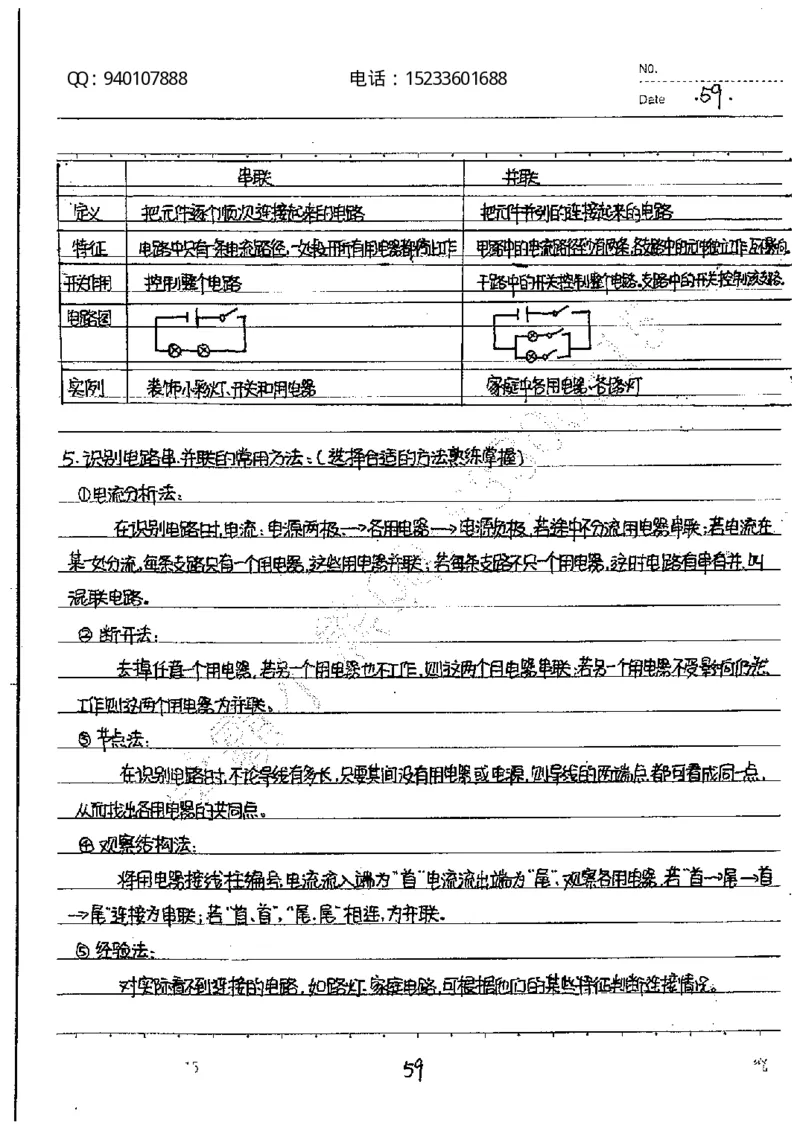 QQ：940107888 电话：15233601688 NO.
Date .59.
串联 并联
定义 把元件逐个顺次连接起来的电路 把元件并列的连接起来的电路
特征 电路中只有一条电流路径,一处段开所有用电器都停止工作 电路中的电流路径至少有两条,各支路中的元件独立工作,互不影响.
开关作用 控制整个电路 干路中的开关控制整个电路.支路中的开关控制该支路.
电路图
实例 装饰小彩灯、开关和用电器 家庭中各用电器、各路灯
5.识别电路串.并联的常用方法:(选择合适的方法熟练掌握)
①电流分析法:
在识别电路时,电流:电源两极→各用电器→电源负极,若途中不分流用电器串联;若电流在
某一处分流,每条支路只有一个用电器,这些用电器并联;若每条支路不只一个用电器,这时电路有串有并、叫
混联电路。
②断开法:
去掉任意一个用电器,若另一个用电器也不工作,则这两个用电器串联;若另一个用电器不受影响仍然
工作则这两个用电器为并联。
③节点法:
在识别电路时,不论导线有多长,只要其间没有用电器或电源,则导线的两端点都可看成同一点,
从而找出各用电器的共同点。
④观察结构法:
将用电器接线柱编号,电流流入端为“首”电流流出端为“尾”,观察各用电器,若“首→尾→首
→尾”连接为串联;若“首、首”,“尾.尾”相连,为并联。
⑤经验法:
对实际看不到连接的电路,如路灯.家庭电路,可根据他们的某些特征判断连接情况。
59